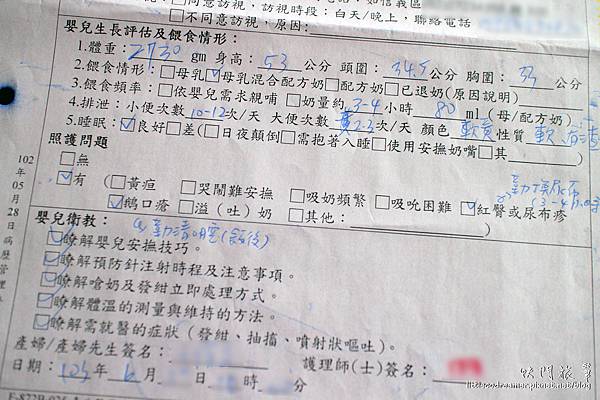 □同意訪視，訪視時段：白天/晚上，聯絡電話
□不同意訪視，原因：
嬰兒生長評估及餵食情形：
1.體重：2730 gm 身高：53 公分 頭圍：34.5 公分 胸圍：33 公分
2.餵食情形：□母乳☑母乳混合配方奶□配方奶□已退奶(原因說明)
3.餵食頻率：□依嬰兒需求親哺 □奶量約 3-4 小時 80 ml (母/配方奶)
4.排泄：小便次數 10-12 次/天 大便次數 2-3 次/天 顏色 軟黃 性質 軟、有渣
5.睡眠：☑良好□差(□日夜顛倒□需抱著入睡□使用安撫奶嘴□其 )
照護問題
□無
勤換尿布
(3-4
☑有 (□黃疸 □哭鬧難安撫 □吸奶頻繁 □吸吮困難 ☑紅臀或尿布疹
☑鵝口瘡 □溢（吐）奶 □其他： )
嬰兒衛教： 勤清口腔(飯後)
☑瞭解嬰兒安撫技巧。
☑瞭解預防針注射時程及注意事項。
☑瞭解嗆奶及發紺立即處理方式。
☑瞭解體溫的測量與維持的方法。
☑瞭解需就醫的症狀（發紺、抽搐、噴射狀嘔吐）。
產婦/產婦先生簽名： 護理師(士)簽名：
日期：103 年 6 月 日 時 分
102年05月28日病歷管理